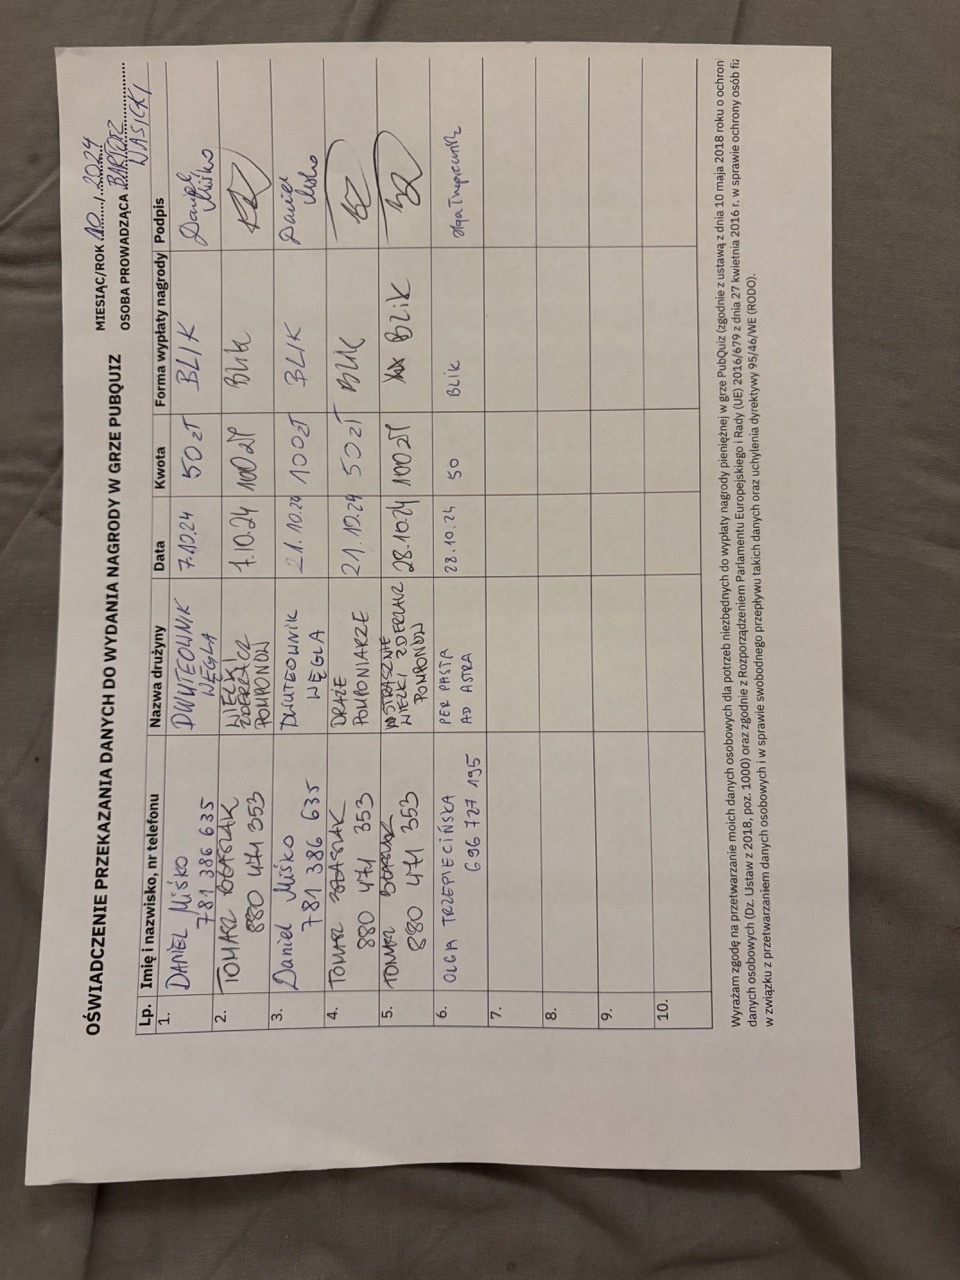 OŚWIADCZENIE PRZEKAZANIA DANYCH DO WYDANIA NAGRODY W GRZE PUBQUIZ
MIESIĄC/ROK 10/2024
OSOBA PROWADZĄCA BARTOSZ
WASICKI
Lp. Imię i nazwisko, nr telefonu Nazwa drużyny Data Kwota Forma wypłaty nagrody Podpis
1. DANIEL Miśko DWUTEOWNIK 7.10.24 50 zł BLIK Daniel
781 386 635 WĘGLA Miśko
2. TOMASZ WIELKI 7.10.24 100 zł BLIK
880 471 353 ZDERZACZ
POMPONÓW
3. Daniel Miśko DWUTEOWNIK 21.10.24 100 zł BLIK Daniel
781 386 635 WĘGLA Miśko
4. TOMASZ DRAŻE 21.10.24 50 zł BLIK
880 471 353 POMPONIARZE
5. TOMASZ STRASZNIE 28.10.24 100 zł BLIK
880 471 353 WIELKI ZDERZACZ
POMPONÓW
6. OLGA TRZEPIECIŃSKA PER PASTA 28.10.24 50 BLIK Olga Trzepiecińska
696 727 195 AD ASTRA
7.
8.
9.
10.
Wyrażam zgodę na przetwarzanie moich danych osobowych dla potrzeb niezbędnych do wypłaty nagrody pieniężnej w grze PubQuiz (zgodnie z ustawą z dnia 10 maja 2018 roku o ochron
danych osobowych (Dz. Ustaw z 2018, poz. 1000) oraz zgodnie z Rozporządzeniem Parlamentu Europejskiego i Rady (UE) 2016/679 z dnia 27 kwietnia 2016 r. w sprawie ochrony osób fiz
w związku z przetwarzaniem danych osobowych i w sprawie swobodnego przepływu takich danych oraz uchylenia dyrektywy 95/46/WE (RODO).